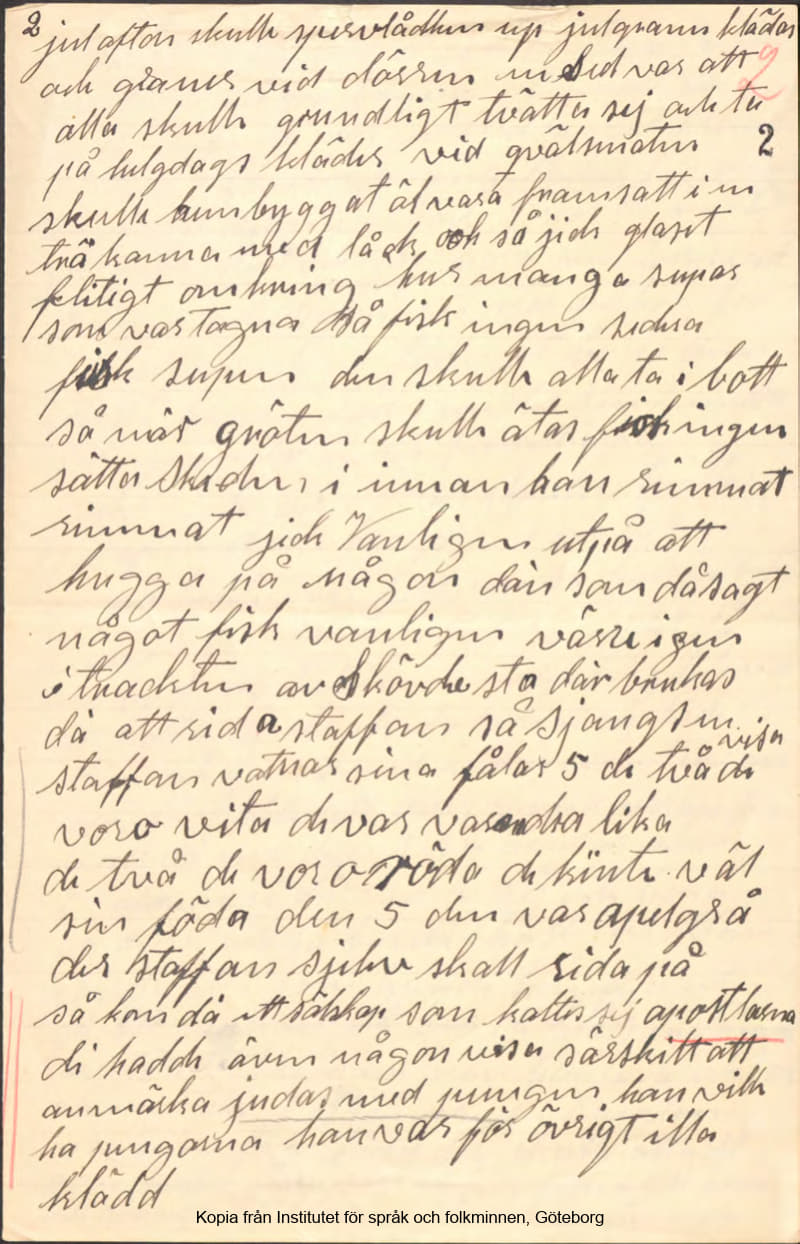 2
julafton skulle spervlådken up julgranen klädas
och graner vid dörren med var att
2
alla skulle grundligt tvätta sej och ta
2
på helgdags kläder vid qvälsmaten
skulle hembyggat öl vara framsatt i en
träkanna med låck och så jick glaset
flitigt omkring hur många supar
som var tagna så fick ingen sedra
fisk supen den skulle alla ta i bott
så när gröten skulle ätas fick ingen
sätta skeden i innan han rimmat
rimmat jick Vanligen utpå att
hugga på någon dän som då sagt
något fick vanligen värre igen
i trackten av Skövde sta där brukas
då att rida staffan så sjöngs en visa
staffan vatnar sina fålar 5 de två de
voro vita de var varandra lika
de två de voro röda de känte väl
sin föda den 5 den var apelgrå
der staffan sjelv skall rida på
så kom då ett sälskap som kallte sej apostlarna
di hadde även någon visa särskilt att
anmärka judas med pungen han ville
ha pungarna han var för övrigt illa
klädd
Kopia från Institutet för språk och folkminnen, Göteborg